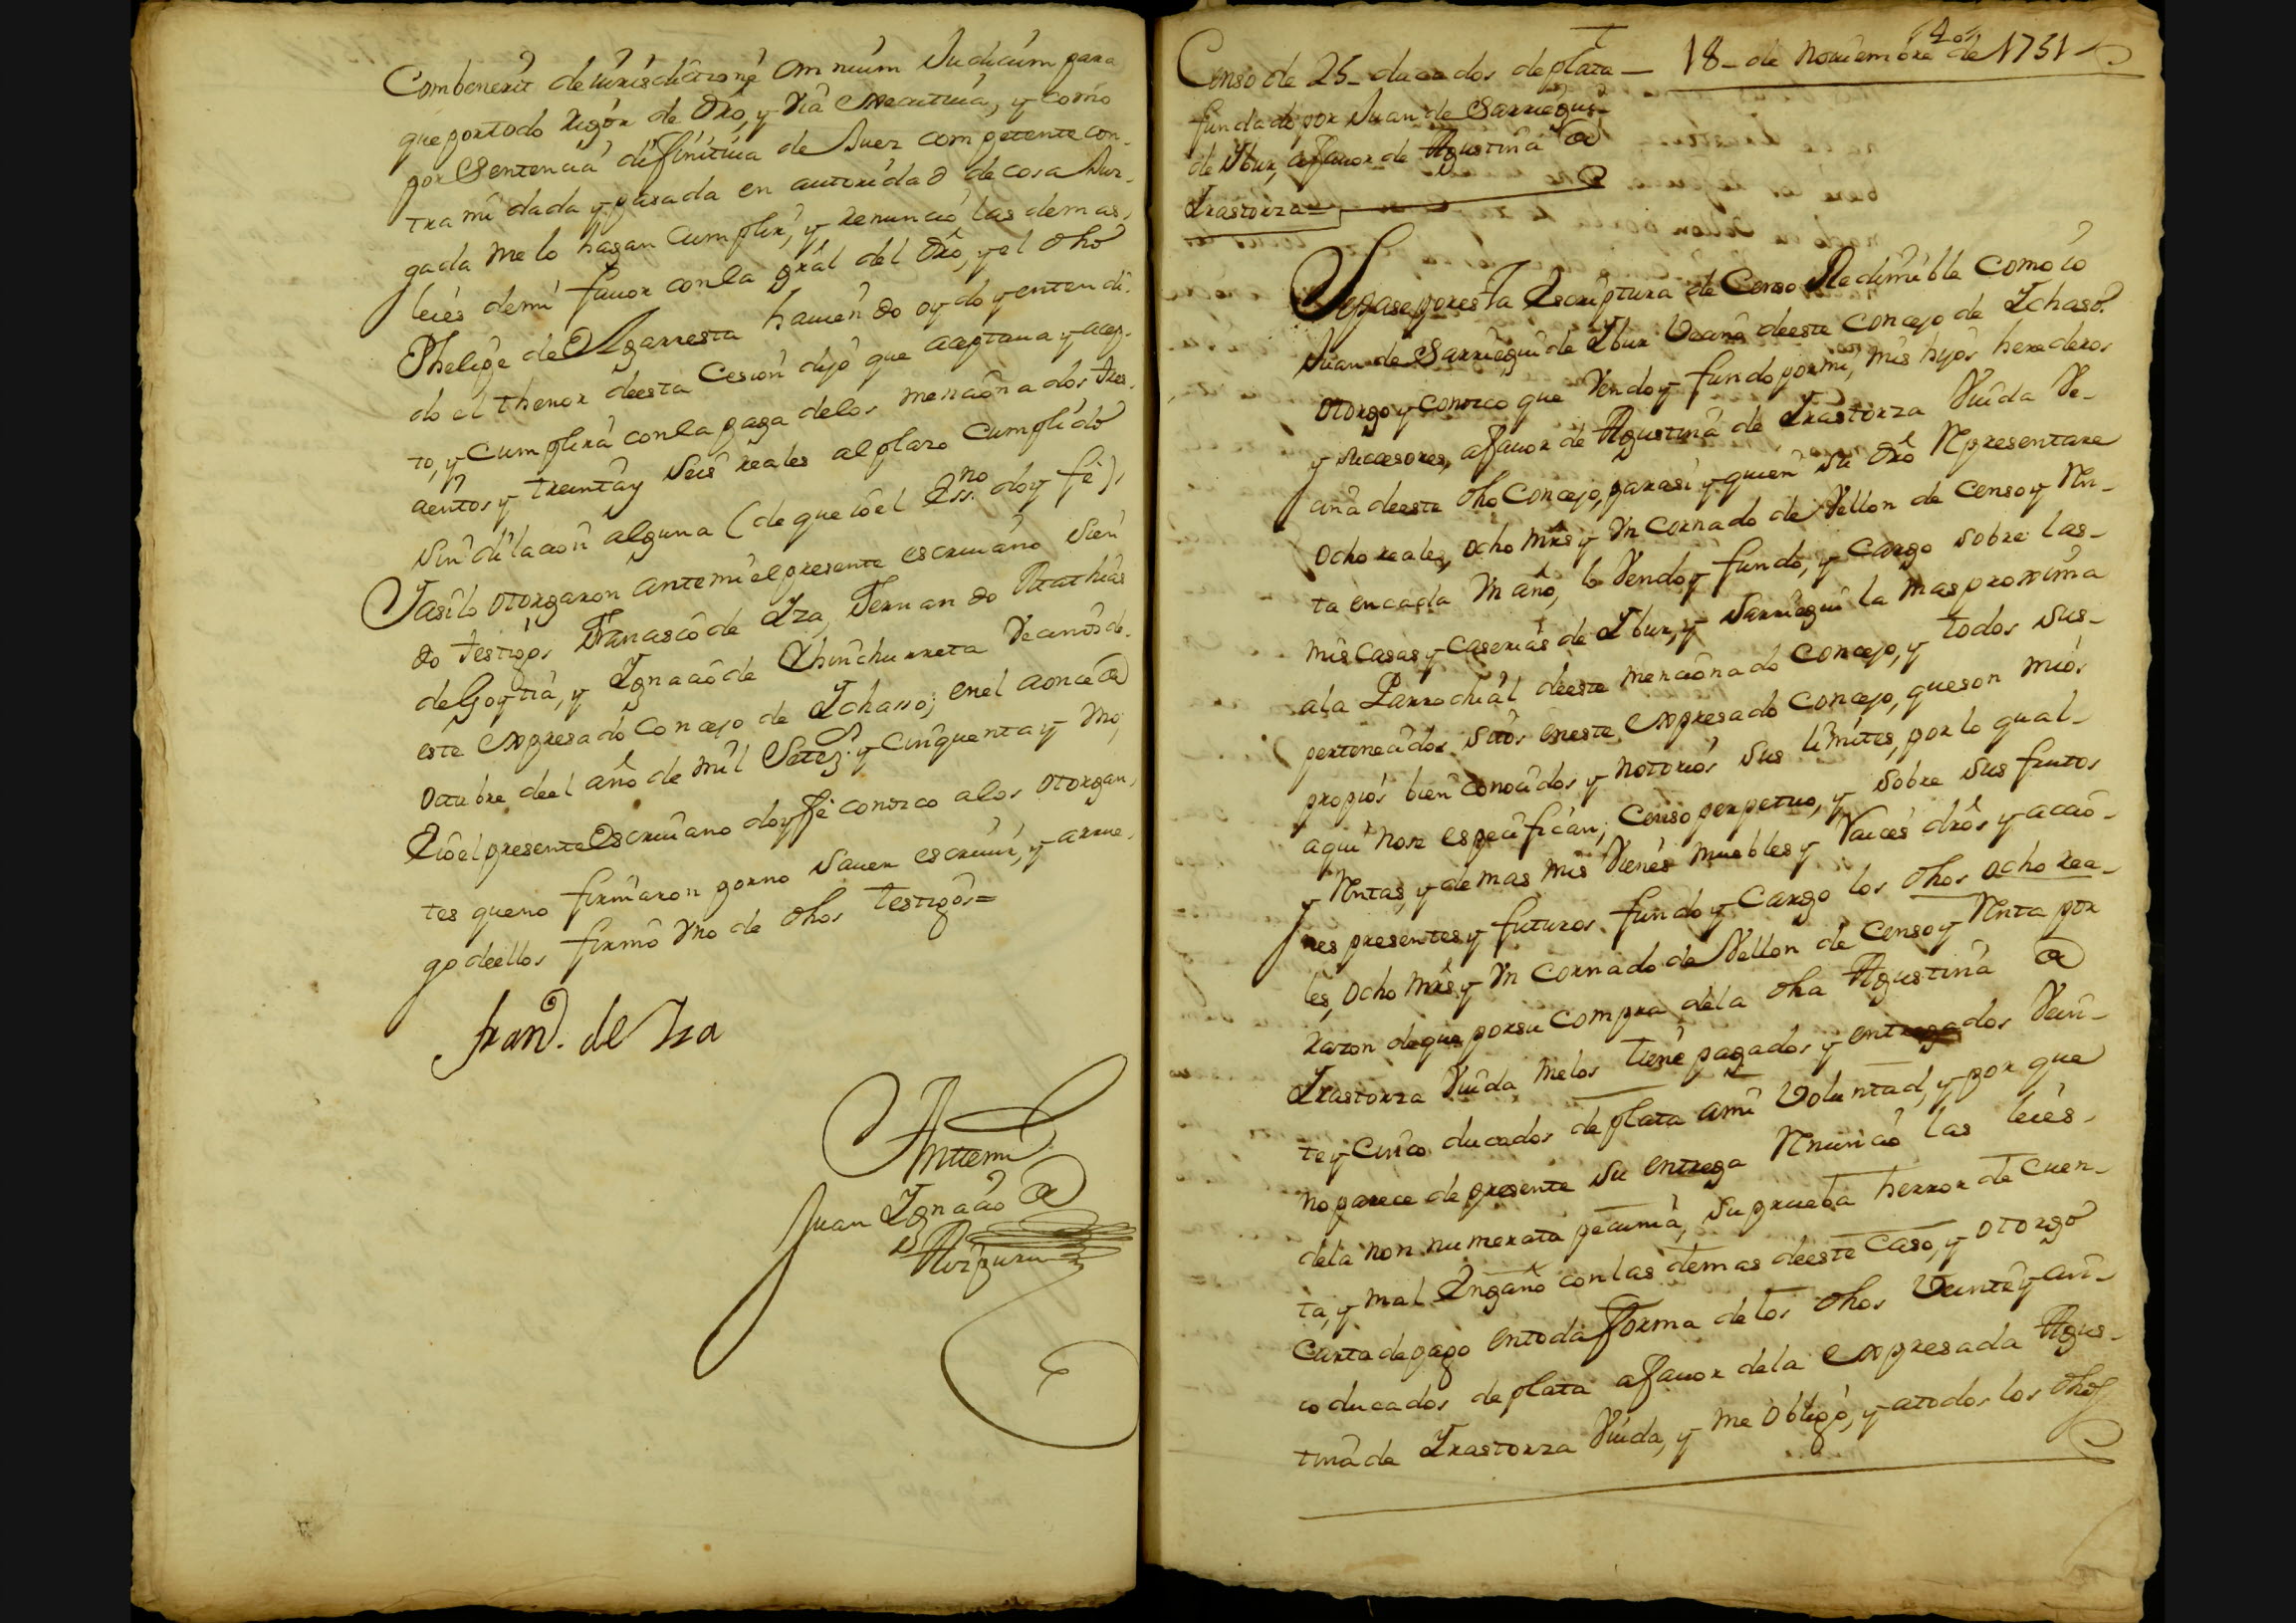 Combenerit de iurisdictione omnium Judicum para
que por todo rigor de dro, y via executiva, y como
por Sentencia difinitiva de Juez competente con-
tra mi dada y pasada en autoridad de cosa Juz-
gada me lo hagan cumplir, y renuncio las demas
leies de mi favor con la gral del dro, y el dho
Phelipe de Olgarresta haviendo oydo y entendi-
do el thenor de esta Cesion dijo que aceptava y acep-
to, y cumplira con la paga de los mencionados tres-
cientos y treinta y seis reales al plazo cumplido
sin dilacion alguna (de que io el Essno doy fe),
Y asi lo otorgaron ante mi el presente escrivano sien-
do testigos Francisco de Iza, Fernando Mathias
de Goytia, y Ignacio de Chinchurreta vecinos de
este expresado Concejo de Ichasso; en el a once de
Octubre de el año de mil Setez.s y cinquenta y uno,
E io el presente Escrivano doy fe conozco a los otorgan-
tes que no firmaron por no saver escrivir, y a rrue-
go de ellos firmo uno de dhos testigos=
Fran.co de Iza
Antte mi
Juan Ignacio de
Aizpuru
Censo de 25 ducados de plata — 18 de Noviembre de 1751
fundado por Juan de Sarriegui
de Ibur, a favor de Agustina de
Irastorza=
Sepase por esta Escriptura de Censo Redimible como io
Juan de Sarriegui de Ibur vecino de este concejo de Ichaso
otorgo y conozco que vendo y fundo por mi, mis hijos herederos
y succesores, a favor de Agustina de Irastorza viuda ve-
cina de este dho Concejo, para si y quien su dro representare
ocho reales, ocho mrs y un cornado de vellon de censo y ren-
ta en cada un año, lo vendo y fundo, y cargo sobre las
mis casas y caserias de Ibur, y Sarriegui la mas proxima
a la Parrochial de este mencionado concejo, y todos sus
pertenecidos sitos en este expresado concejo, que son mios
propios bien conocidos y notorios sus limites, por lo qual
aqui no se especifican; censo perpetuo, y sobre sus frutos
y rentas, y demas mis vienes muebles y raices dros y accio-
nes presentes y futuros fundo y cargo los dhos ocho rea-
les, ocho mrs y un cornado de vellon de censo y renta por
razon de que por su compra de la dha Agustina de
Irastorza viuda me los tiene pagados y entregados vein-
te y cinco ducados de plata a mi voluntad, y por que
no parece de presente su entrega renuncio las leies
de la non numerata pecunia, su prueba herror de cuen-
ta, y mal Engaño con las demas de este caso, y otorgo
carta de pago en toda forma de los dhos veinte y cin-
co ducados de plata a favor de la expresada Agus-
tina de Irastorza viuda, y me obligo, y a todos los dhos